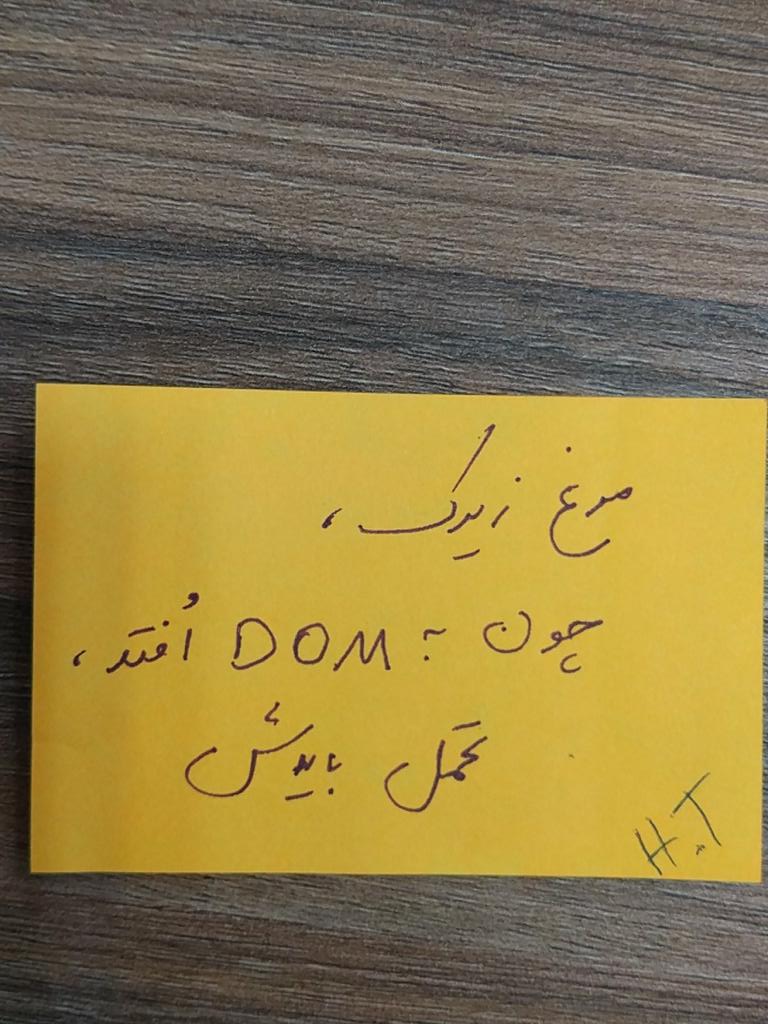 مرغ زیرک،
چون به DOM اُفتد،
تحمل بایدش
H.T